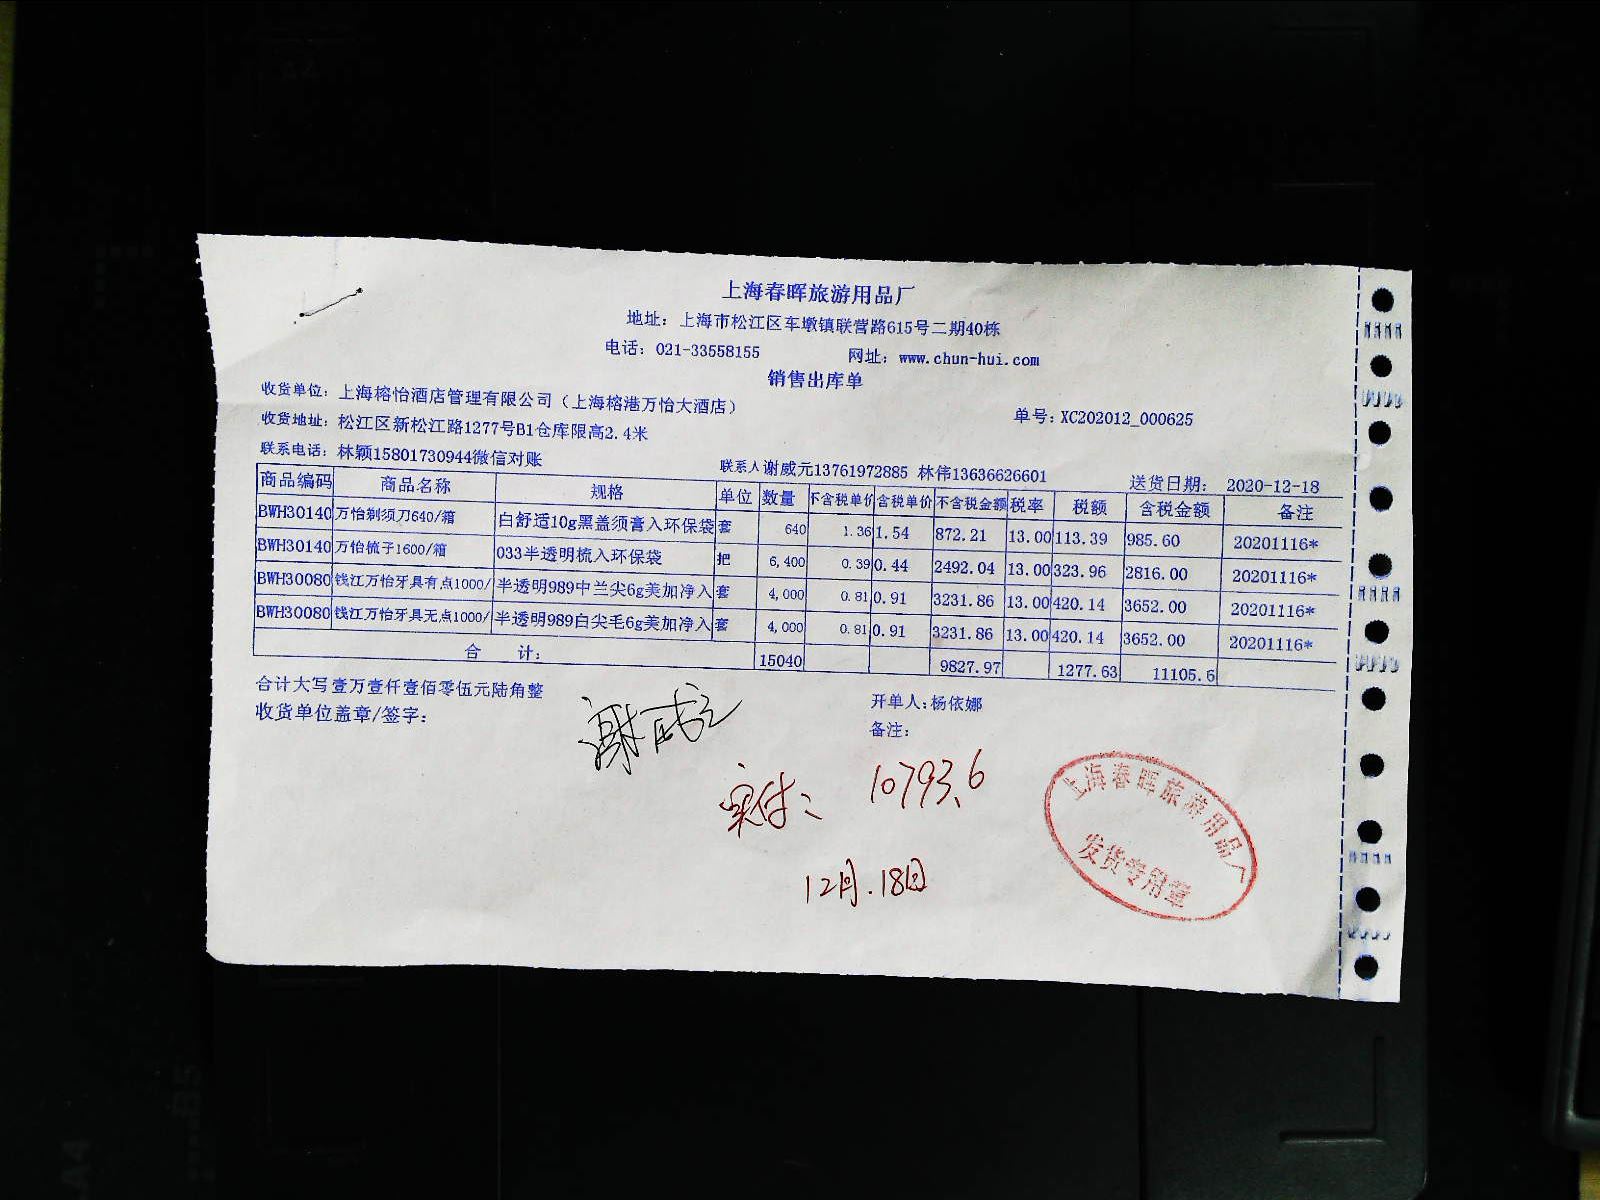 上海春晖旅游用品厂
地址：上海市松江区车墩镇联营路615号二期40栋
电话：021-33558155 网址：www.chun-hui.com
销售出库单
收货单位：上海榕怡酒店管理有限公司（上海榕港万怡大酒店）
单号：XC202012_000625
收货地址：松江区新松江路1277号B1仓库限高2.4米
联系电话：林颖15801730944微信对账 联系人谢威元13761972885 林伟13636626601 送货日期： 2020-12-18
商品编码 商品名称 规格 单位 数量 不含税单价 含税单价 不含税金额 税率 税额 含税金额 备注
BWH30140 万怡剃须刀640/箱 白舒适10g黑盖须膏入环保袋 套 640 1.36 1.54 872.21 13.00 113.39 985.60 20201116*
BWH30140 万怡梳子1600/箱 033半透明梳入环保袋 把 6,400 0.39 0.44 2492.04 13.00 323.96 2816.00 20201116*
BWH30080 钱江万怡牙具有点1000/ 半透明989中兰尖6g美加净入 套 4,000 0.81 0.91 3231.86 13.00 420.14 3652.00 20201116*
BWH30080 钱江万怡牙具无点1000/ 半透明989白尖毛6g美加净入 套 4,000 0.81 0.91 3231.86 13.00 420.14 3652.00 20201116*
合 计： 15040 9827.97 1277.63 11105.6
合计大写壹万壹仟壹佰零伍元陆角整
开单人：杨依娜
收货单位盖章/签字： 谢威元
备注：
实付： 10793.6
12月.18日
上海春晖旅游用品厂
发货专用章